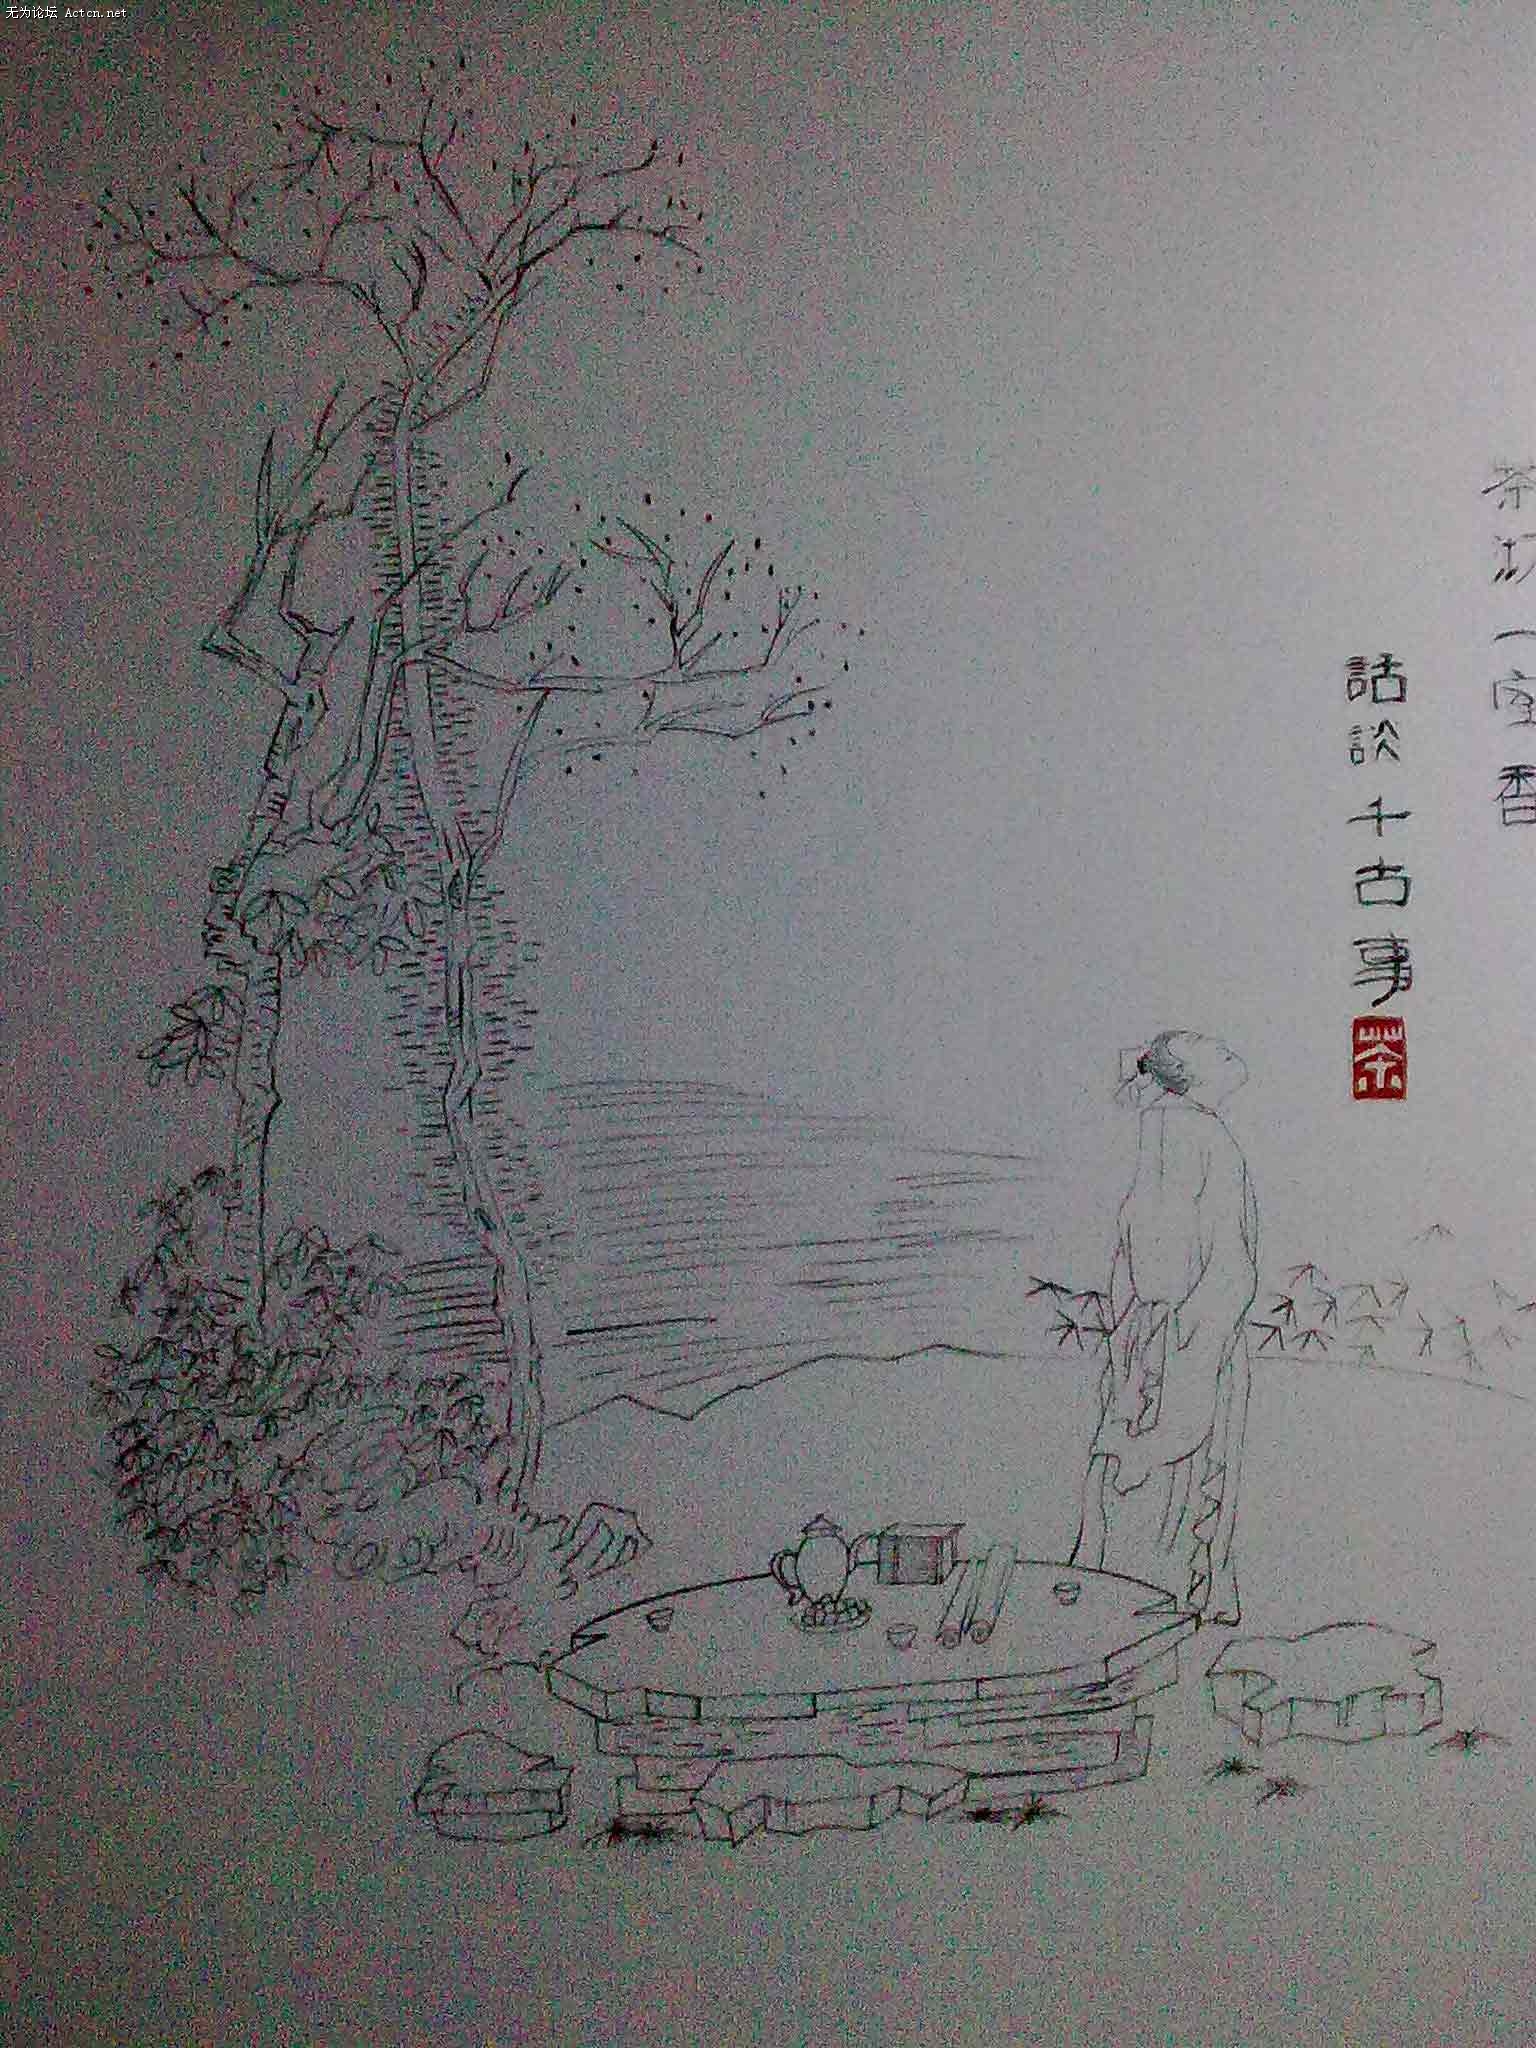 无为论坛 Actcn.net
茶沏一室香
話談千古事
茶